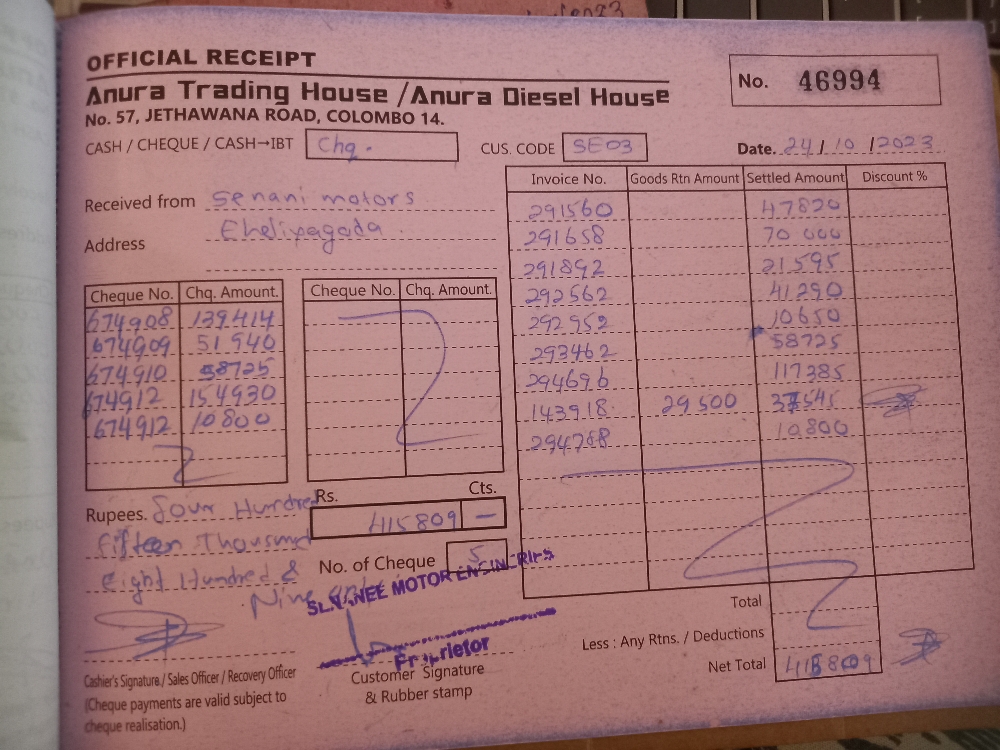 OFFICIAL RECEIPT
Anura Trading House / Anura Diesel House
No. 57, JETHAWANA ROAD, COLOMBO 14.
No. 46994
CASH / CHEQUE / CASH→IBT Chq.
CUS. CODE SE03
Date. 24/10/2023
Received from Senani motors
Address Eheliyagoda
Invoice No. Goods Rtn Amount Settled Amount Discount %
291560 47820
291658 70 000
291892 21595
292562 41290
292952 10650
293462 58725
294696 117385
143918 29500 37545
294788 10800
Cheque No. Chq. Amount. Cheque No. Chq. Amount.
674908 139414
674909 51940
674910 58725
674912 154930
674912 10800
Rupees. Four Hundred
Fifteen Thousand
Eight Hundred &
Nine only
Rs. Cts.
415809 —
No. of Cheque 5
MOTOR
Proprietor
Cashier's Signature./ Sales Officer / Recovery Officer
(Cheque payments are valid subject to
cheque realisation.)
Customer Signature
& Rubber stamp
Total
Less : Any Rtns. / Deductions
Net Total 415809